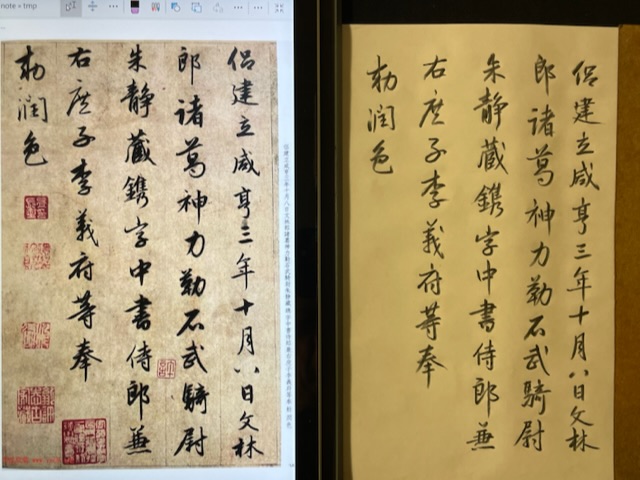 note » tmp
侣建立咸亨三年十月八日文林
郎诸葛神力勒石武骑尉
朱静藏鐫字中書侍郎兼
右庶子李義府等奉
勅润色
侣建立咸亨三年十月八日文林
郎诸葛神力勒石武骑尉
朱静藏鐫字中書侍郎兼
右庶子李義府等奉
勅润色